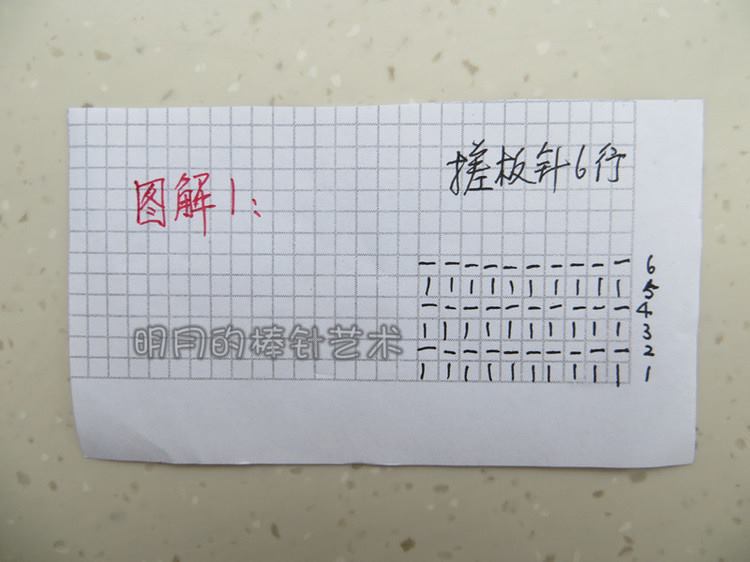 搓板针6行
图解1:
— — — — — — — — — — — 6
| | | | | | | | | | | 5
— — — — — — — — — — — 4
| | | | | | | | | | | 3
— — — — — — — — — — — 2
| | | | | | | | | | | 1
明月的棒针艺术